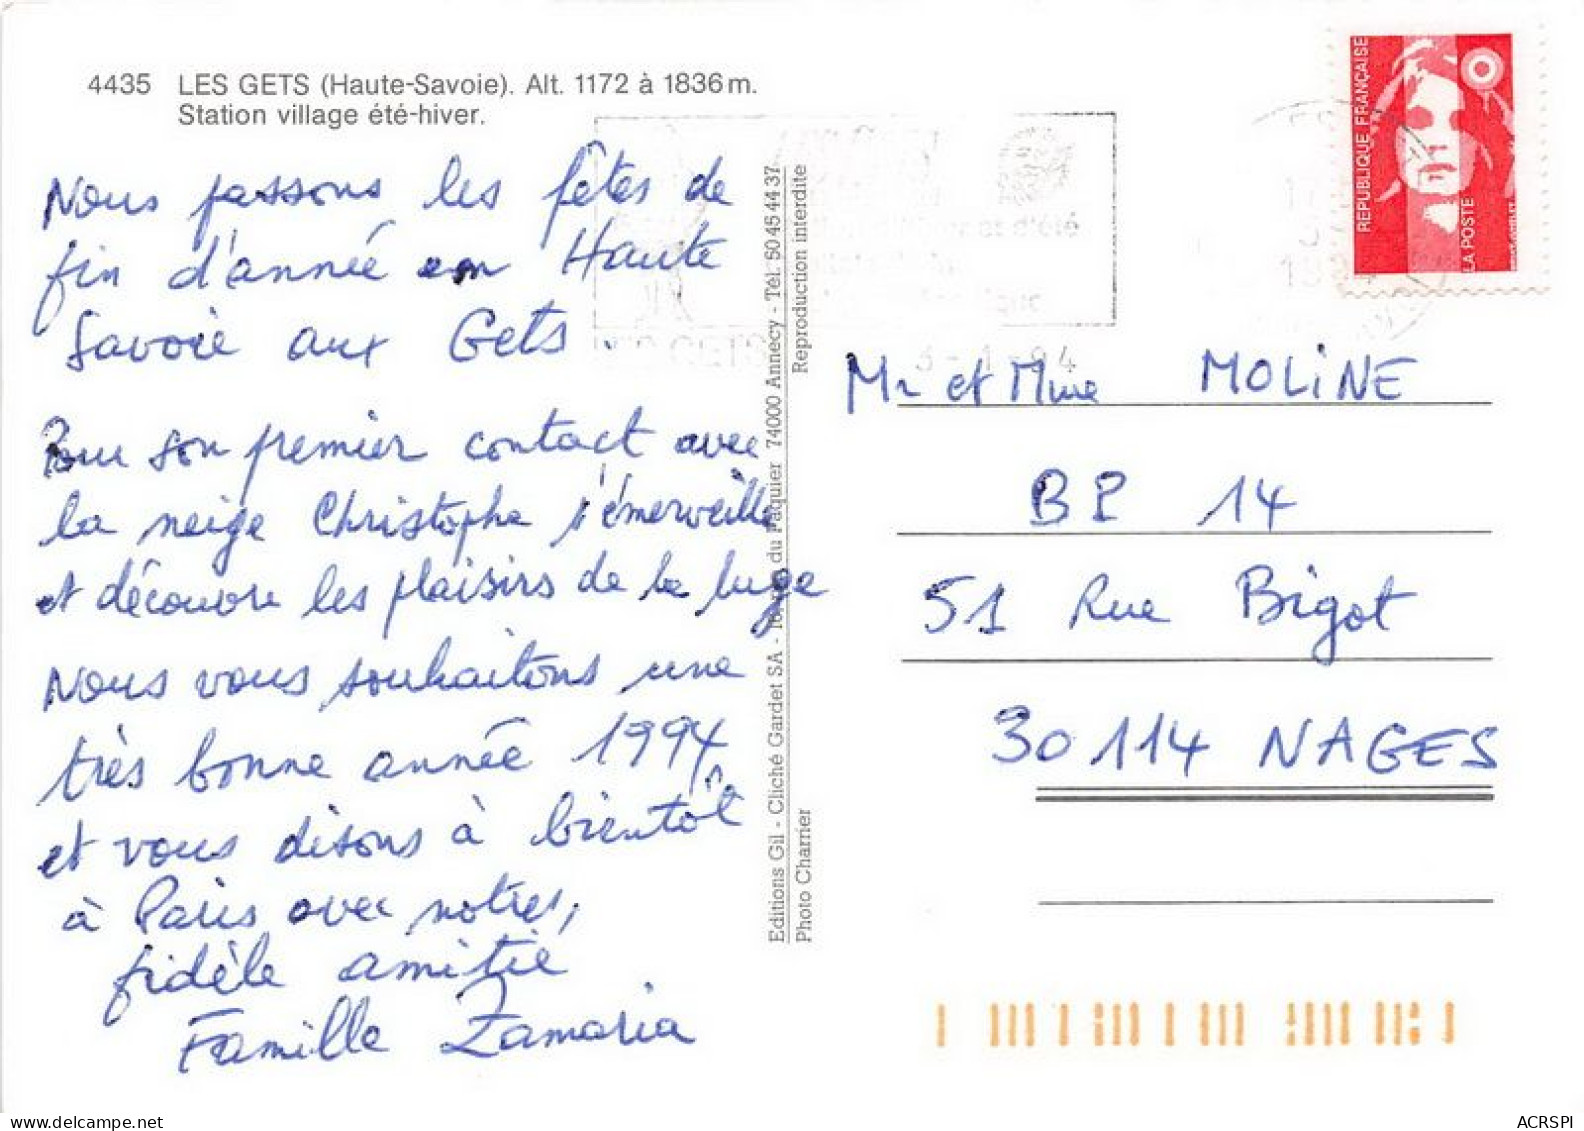 4435 LES GETS (Haute-Savoie). Alt. 1172 à 1836 m.
Station village été-hiver.
Nous passons les fêtes de
fin d'année en Haute
Savoie aux Gets.
Pour son premier contact avec
la neige Christophe s'émerveille
et découvre les plaisirs de la luge
Nous vous souhaitons une
très bonne année 1994
et vous disons à bientôt
à Paris avec notre,
fidèle amitié
Famille Zamaria
Editions Gil - Cliché Gardet SA - du Paquier 74000 Annecy - Tél. 50 45 44 37
Photo Charrier
Reproduction interdite
et d'été
GETS
3 - 1 - 94
REPUBLIQUE FRANÇAISE
LA POSTE
Mr et Mme MOLINE
BP 14
51 Rue Bigot
30114 NAGES
ACRSPI